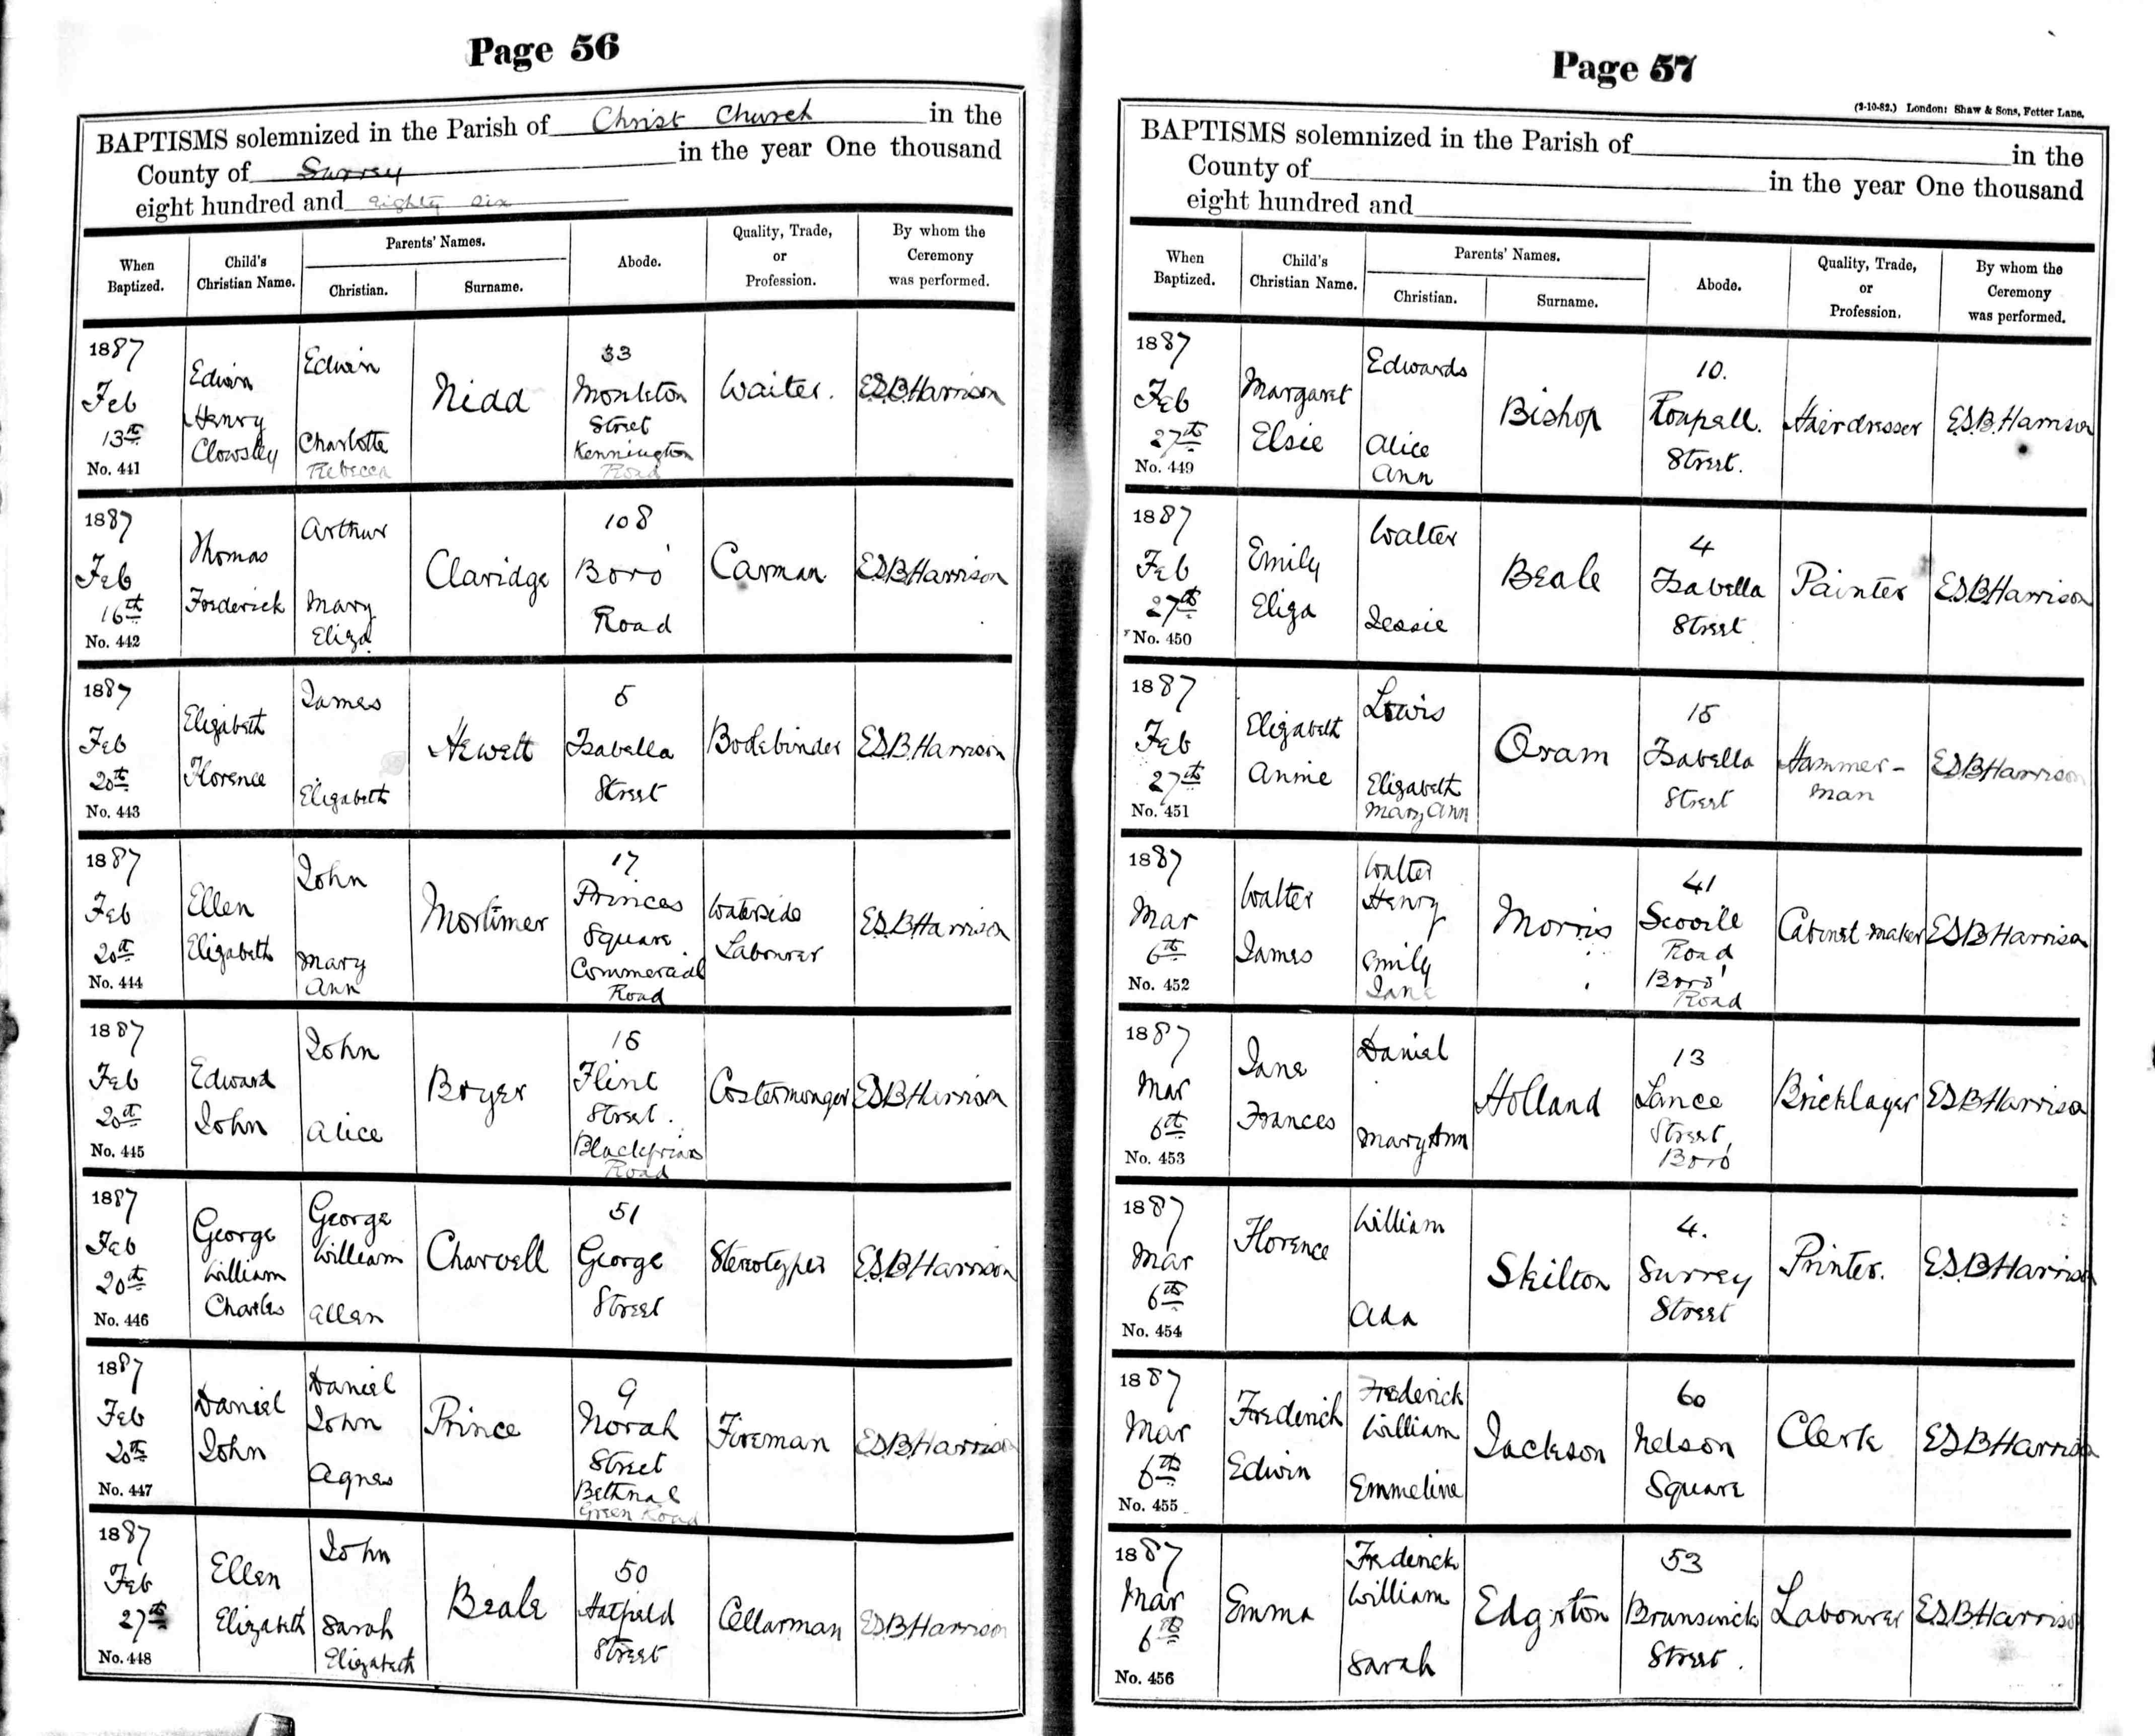 Page 56
BAPTISMS solemnized in the Parish of Christ Church in the
County of Surrey in the year One thousand
eight hundred and eighty six
When Baptized.
Child's Christian Name.
Parents' Names.
Christian.
Surname.
Abode.
Quality, Trade, or Profession.
By whom the Ceremony was performed.
1887
Feb
13th
No. 441
Edwin
Henry
Clowsley
Edwin
Charlotte
Rebecca
Nidd
33
Monkton
Street
Kennington
Road
Waiter.
E.S.B.Harrison
1887
Feb
16th
No. 442
Thomas
Frederick
Arthur
Mary
Eliza
Claridge
108
Boro'
Road
Carman
E.S.B.Harrison
1887
Feb
20th
No. 443
Elizabeth
Florence
James
Elizabeth
Hewett
5
Isabella
Street
Bookbinder
E.S.B.Harrison
1887
Feb
20th
No. 444
Ellen
Elizabeth
John
Mary
Ann
Mortimer
17
Princes
Square
Commercial
Road
Waterside
Labourer
E.S.B.Harrison
1887
Feb
20th
No. 445
Edward
John
John
Alice
Boyer
15
Flint
Street.
Blackfriars
Road
Costermonger
E.S.B.Harrison
1887
Feb
20th
No. 446
George
William
Charles
George
William
Allen
Charvell
51
George
Street
Stereotyper
E.S.B.Harrison
1887
Feb
20th
No. 447
Daniel
John
Daniel
John
Agnes
Prince
9
Norah
Street
Bethnal
Green Road
Fireman
E.S.B.Harrison
1887
Feb
27th
No. 448
Ellen
Elizabeth
John
Sarah
Elizabeth
Beale
50
Hatfield
Street
Cellarman
E.S.B.Harrison
Page 57
(2-10-82.) London: Shaw & Sons, Fetter Lane.
BAPTISMS solemnized in the Parish of in the
County of in the year One thousand
eight hundred and
When Baptized.
Child's Christian Name.
Parents' Names.
Christian.
Surname.
Abode.
Quality, Trade, or Profession.
By whom the Ceremony was performed.
1887
Feb
27th
No. 449
Margaret
Elsie
Edwards
Alice
Ann
Bishop
10.
Roupell.
Street.
Hairdresser
E.S.B.Harrison
1887
Feb
27th
No. 450
Emily
Eliza
Walter
Jessie
Beale
4
Isabella
Street
Painter
E.S.B.Harrison
1887
Feb
27th
No. 451
Elizabeth
Annie
Lewis
Elizabeth
Mary Ann
Oram
15
Isabella
Street
Hammer-
man
E.S.B.Harrison
1887
Mar
6th
No. 452
Walter
James
Walter
Henry
Emily
Jane
Morris
41
Scovill
Road
Boro'
Road
Cabinet maker
E.S.B.Harrison
1887
Mar
6th
No. 453
Jane
Frances
Daniel
Mary Ann
Holland
13
Lance
Street,
Boro'
Bricklayer
E.S.B.Harrison
1887
Mar
6th
No. 454
Florence
William
Ada
Skilton
4.
Surrey
Street
Printer.
E.S.B.Harrison
1887
Mar
6th
No. 455
Frederick
Edwin
Frederick
William
Emmeline
Jackson
60
Nelson
Square
Clerk
E.S.B.Harrison
1887
Mar
6th
No. 456
Emma
Frederick
William
Sarah
Edgerton
53
Brunswick
Street.
Labourer
E.S.B.Harrison